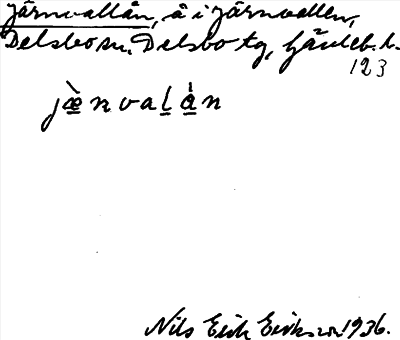 Järnvallån, å i Järnvallen,
Delsbo sn. Delsbo tg, Gävleb. l.
123
jæ̀nvalån
Nils Erik Eriksson 1936.